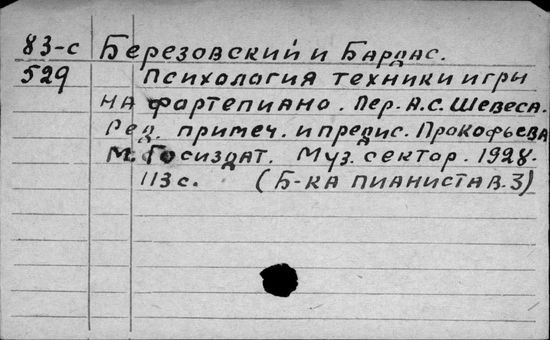 83-с Березовский и Бардас.
529 Психология техники игры
на фортепиано. Пер. А.С. Шевеса.
Ред. примеч. и предис. Прокофьева
М. Госиздат. Муз. сектор. 1928.
113 с. (Б-ка пианиста в. 3)